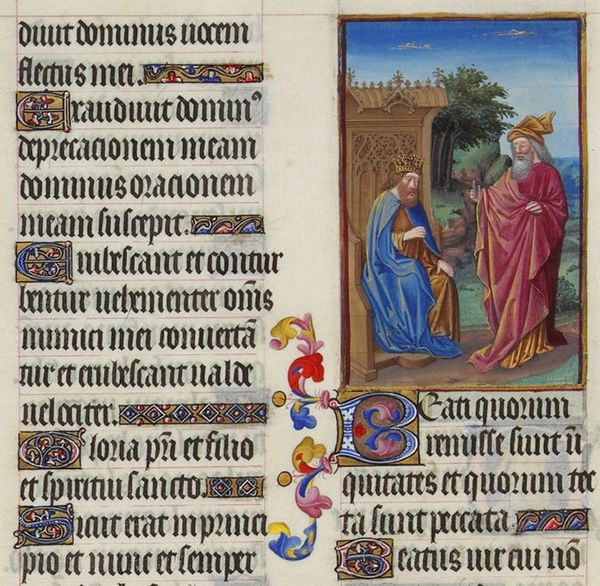 diuit dominus uocem
flectus mei.
Exaudiuit dominꝰ
deprecacionem meam
dominus oracionem
meam suscepit.
Erubescant et contur
bentur uehementer om̄s
inimici mei conuertā
tur et erubescant ualde
uelociter.
Gloria pr̄i et filio
et spiritui sancto.
Sicut erat in princi
pio et nunc et semper
Beati quorum
remisse sunt iī
quitates et quorum tec
ta sunt peccata.
Beatus uir cui nō